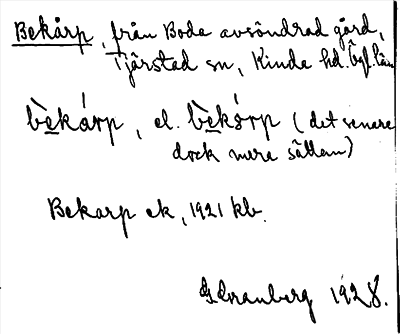 Bekårp, från Bode avsöndrad gård,
Tjärstad sn, Kinda hd. Ögl. län
bèkárp, el. bèkórp (det senare
dock mera sällan)
Bekarp ek, 1921 kb.
G Cranberg 1928.